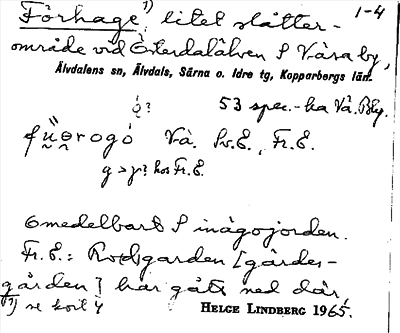 Förhage 1) litet slåtter- 1-4
område vid Österdalälven S Våsa by,
Älvdalens sn, Älvdals, Särna o. Idre tg, Kopparbergs län.
53 spec.-ka Vå. Bly.
Vå. Sv.E., Fr.E.
g > γ? hos Fr.E.
Omedelbart S inägojorden.
Fr.E.: Rodgarden [gärdes-
gården] har gått ned där
1) se kort 4 HELGE LINDBERG 1965.